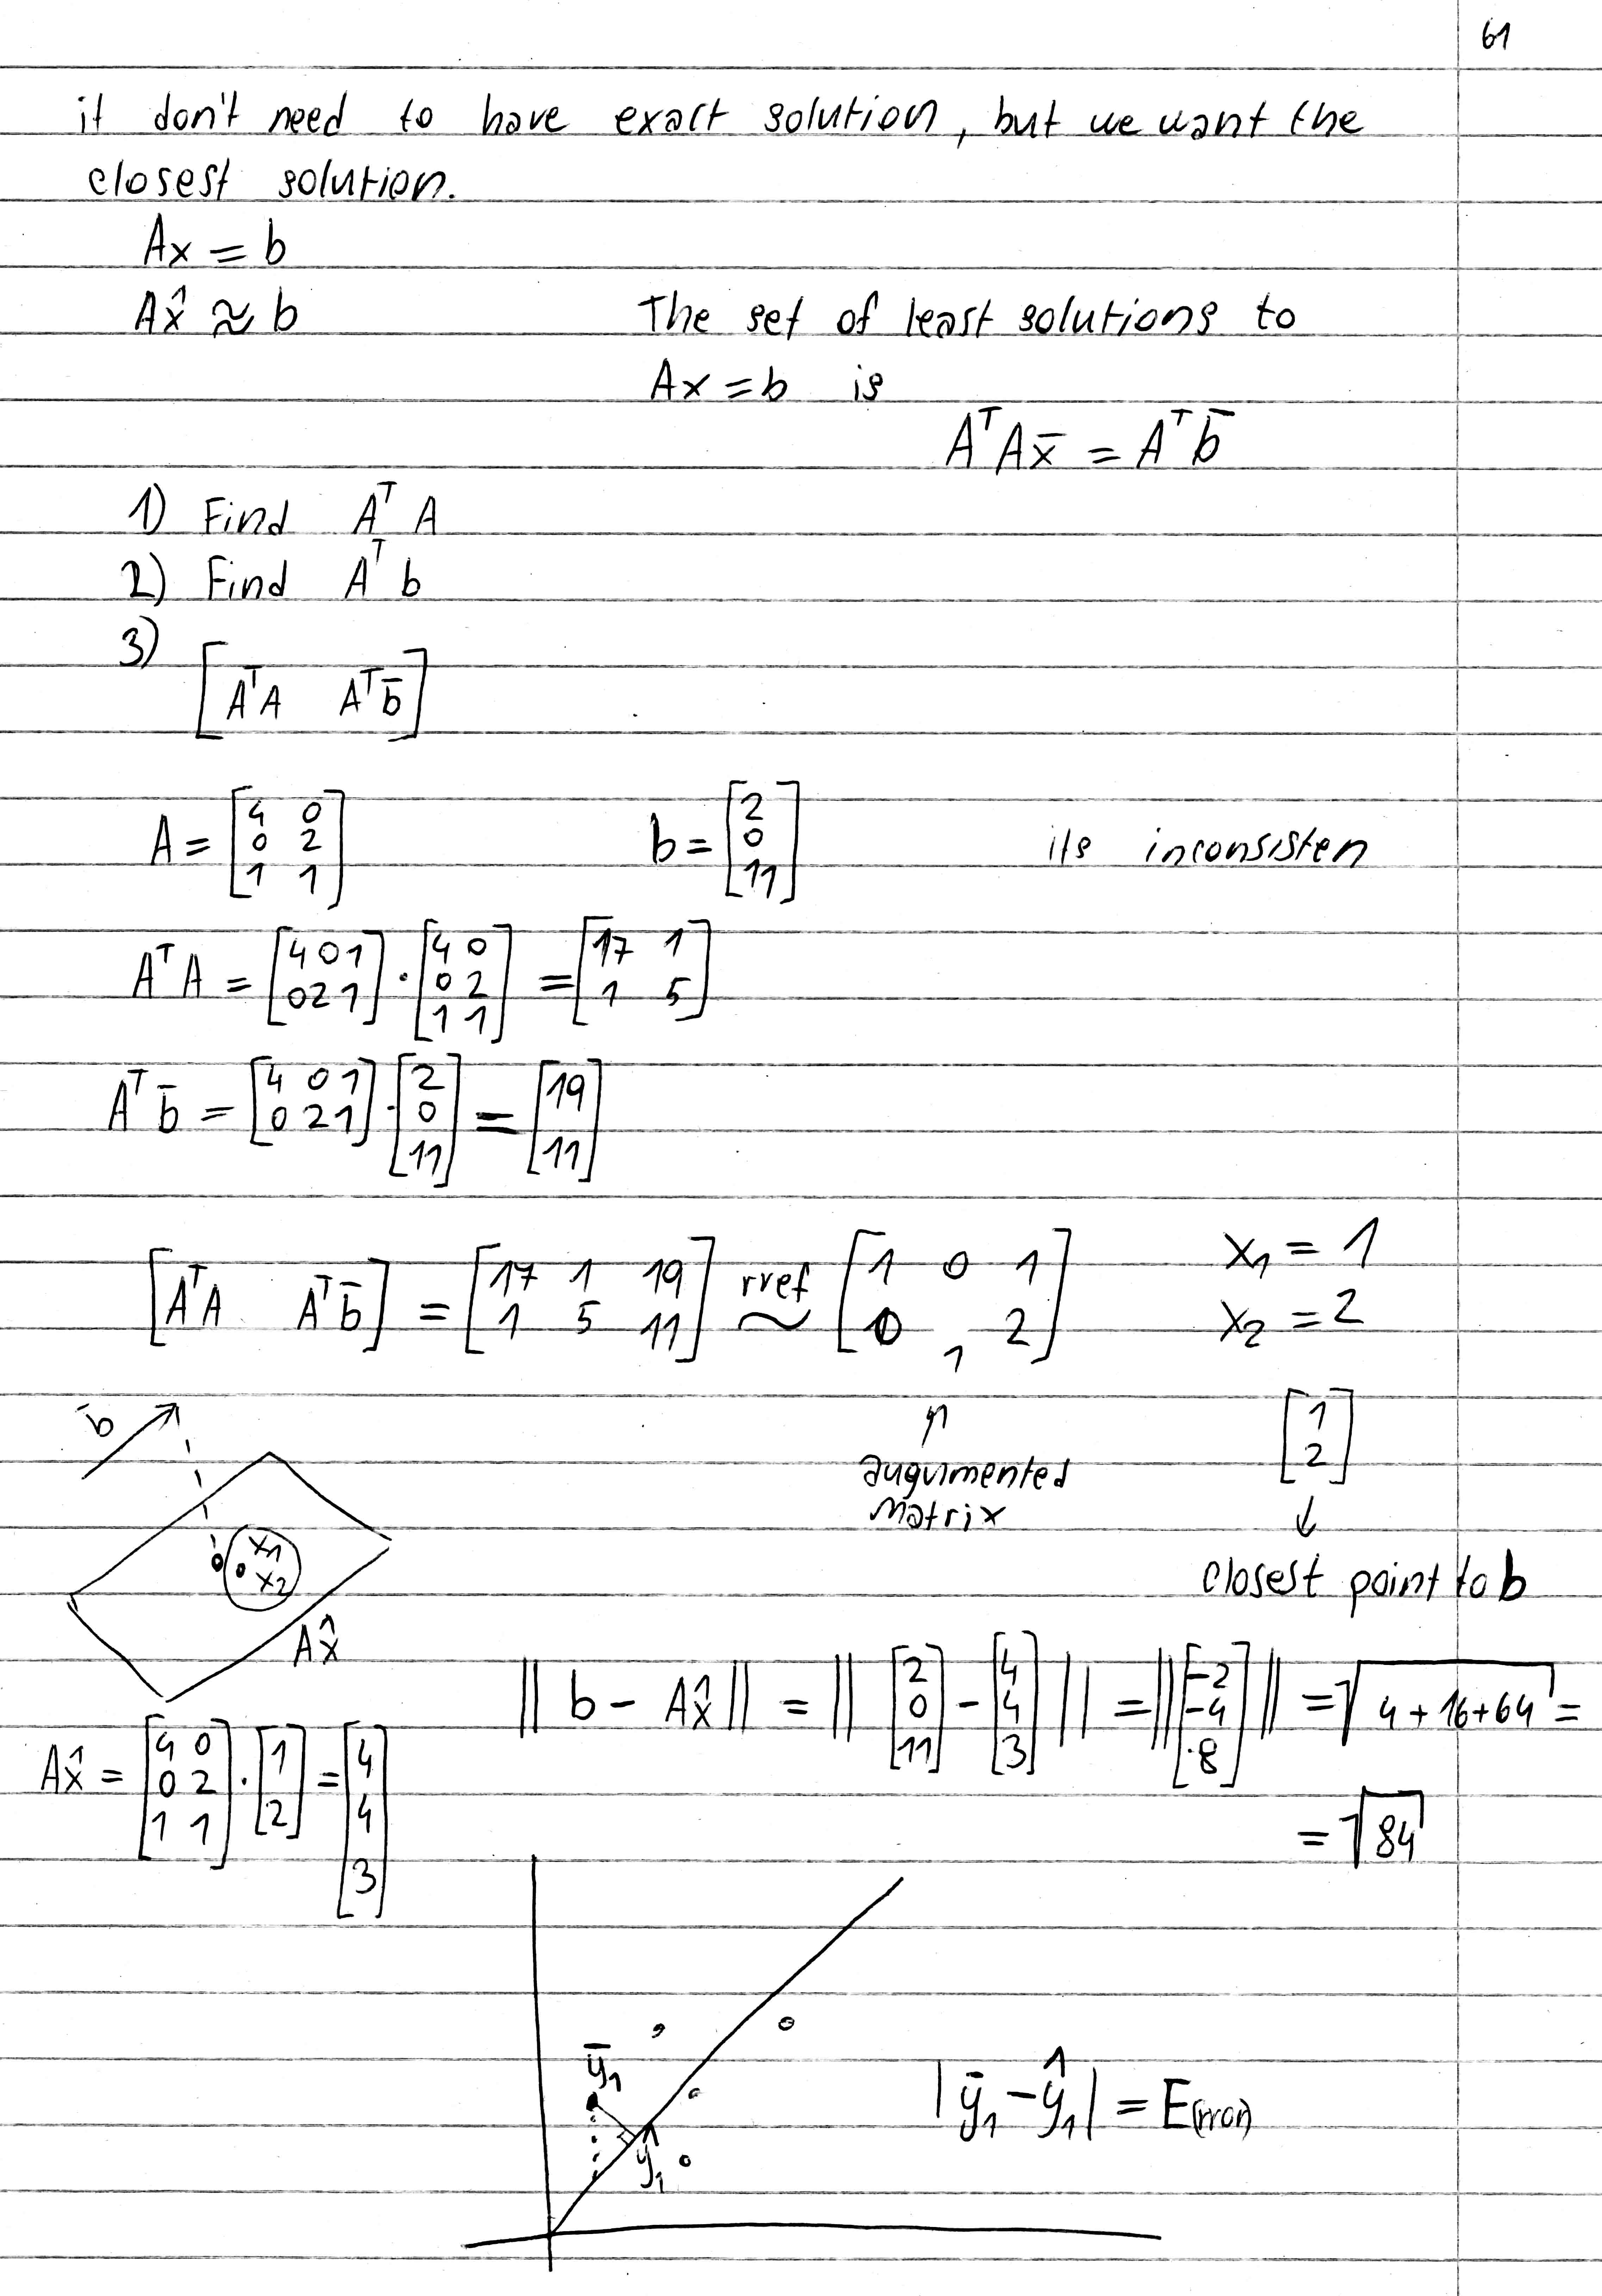 61
it don't need to have exact solution, but we want the
closest solution.
Ax = b
Ax̂ ≈ b The set of least solutions to
Ax = b is
AᵀAx̄ = Aᵀb̄
1) Find Aᵀ A
2) Find Aᵀ b
3)
[AᵀA Aᵀb̄]
A = [4 0; 0 2; 1 1] b = [2; 0; 11] its inconsisten
Aᵀ A = [4 0 1; 0 2 1] · [4 0; 0 2; 1 1] = [17 1; 1 5]
Aᵀ b̄ = [4 0 1; 0 2 1] · [2; 0; 11] = [19; 11]
[AᵀA Aᵀb̄] = [17 1 19; 1 5 11] rref ~ [1 0 1; 0 1 2] x₁ = 1
x₂ = 2
b̄ ↑ [1; 2]
augumented
matrix ↓
x₁
x₂ closest point to b
Ax̂
|| b - Ax̂ || = || [2; 0; 11] - [4; 4; 3] || = || [-2; -4; 8] || = √4 + 16 + 64 =
Ax̂ = [4 0; 0 2; 1 1] · [1; 2] = [4; 4; 3]
= √84
ȳ₁
|ȳ₁ - ŷ₁| = E(rror)
ŷ₁